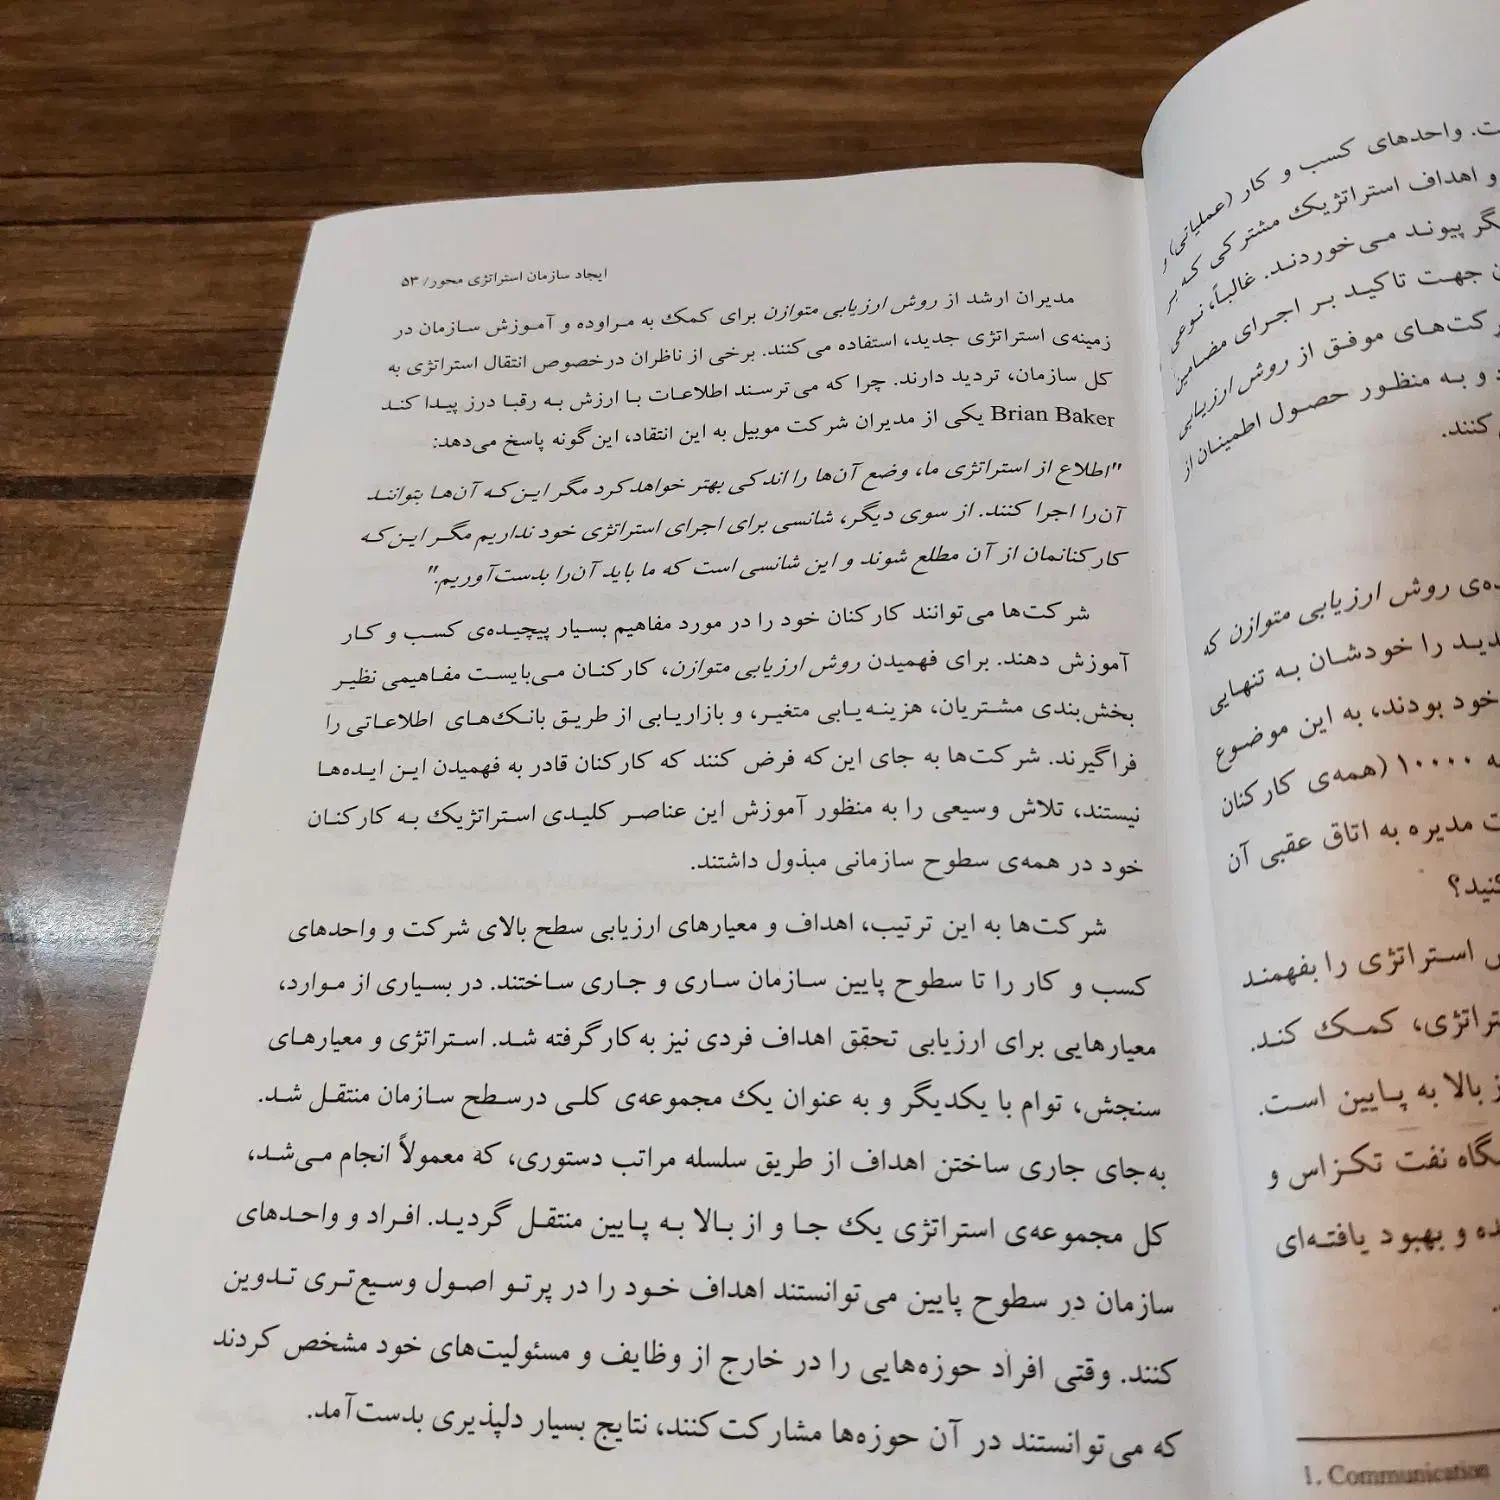 ت. واحدهای کسب و کار (عملیاتی) و
و اهداف استراتژیک مشترکی که بر
گر پیوند می‌خوردند. غالباً، نوعی
ن جهت تاکید بر اجرای مضامین
رکت‌های موفق از روش ارزیابی
د و به منظور حصول اطمینان از
کنند.
ده‌ی روش ارزیابی متوازن که
دید را خودشان به تنهایی
خود بودند، به این موضوع
ه ۱۰۰۰۰ (همه‌ی کارکنان
ت مدیره به اتاق عقبی آن
کنید؟
ش استراتژی را بفهمند
تراتژی، کمک کند.
ز بالا به پایین است.
گاه نفت تکزاس و
ده و بهبود یافته‌ای
1. Communication
ایجاد سازمان استراتژی محور/ ۵۳
مدیران ارشد از روش ارزیابی متوازن برای کمک به مراوده و آموزش سازمان در
زمینه‌ی استراتژی جدید، استفاده می‌کنند. برخی از ناظران درخصوص انتقال استراتژی به
کل سازمان، تردید دارند. چرا که می‌ترسند اطلاعات با ارزش به رقبا درز پیدا کند
Brian Baker یکی از مدیران شرکت موبیل به این انتقاد، این‌گونه پاسخ می‌دهد:
"اطلاع از استراتژی ما، وضع آن‌ها را اندکی بهتر خواهدکرد مگر این‌که آن‌ها بتوانند
آن‌را اجرا کنند. از سوی دیگر، شانسی برای اجرای استراتژی خود نداریم مگر این‌که
کارکنانمان از آن مطلع شوند و این شانسی است که ما باید آن‌را بدست‌آوریم."
شرکت‌ها می‌توانند کارکنان خود را در مورد مفاهیم بسیار پیچیده‌ی کسب و کار
آموزش دهند. برای فهمیدن روش ارزیابی متوازن، کارکنان می‌بایست مفاهیمی نظیر
بخش‌بندی مشتریان، هزینه‌یابی متغیر، و بازاریابی از طریق بانک‌های اطلاعاتی را
فراگیرند. شرکت‌ها به جای این‌که فرض کنند که کارکنان قادر به فهمیدن این ایده‌ها
نیستند، تلاش وسیعی را به منظور آموزش این عناصر کلیدی استراتژیک به کارکنان
خود در همه‌ی سطوح سازمانی مبذول داشتند.
شرکت‌ها به این ترتیب، اهداف و معیارهای ارزیابی سطح بالای شرکت و واحدهای
کسب و کار را تا سطوح پایین سازمان ساری و جاری ساختند. در بسیاری از موارد،
معیارهایی برای ارزیابی تحقق اهداف فردی نیز به‌کارگرفته شد. استراتژی و معیارهای
سنجش، توام با یکدیگر و به عنوان یک مجموعه‌ی کلی درسطح سازمان منتقل شد.
به‌جای جاری ساختن اهداف از طریق سلسله مراتب دستوری، که معمولاً انجام می‌شد،
کل مجموعه‌ی استراتژی یک جا و از بالا به پایین منتقل گردید. افراد و واحدهای
سازمان در سطوح پایین می‌توانستند اهداف خود را در پرتو اصول وسیع‌تری تدوین
کنند. وقتی افراد حوزه‌هایی را در خارج از وظایف و مسئولیت‌های خود مشخص کردند
که می‌توانستند در آن حوزه‌ها مشارکت‌کنند، نتایج بسیار دلپذیری بدست‌آمد.